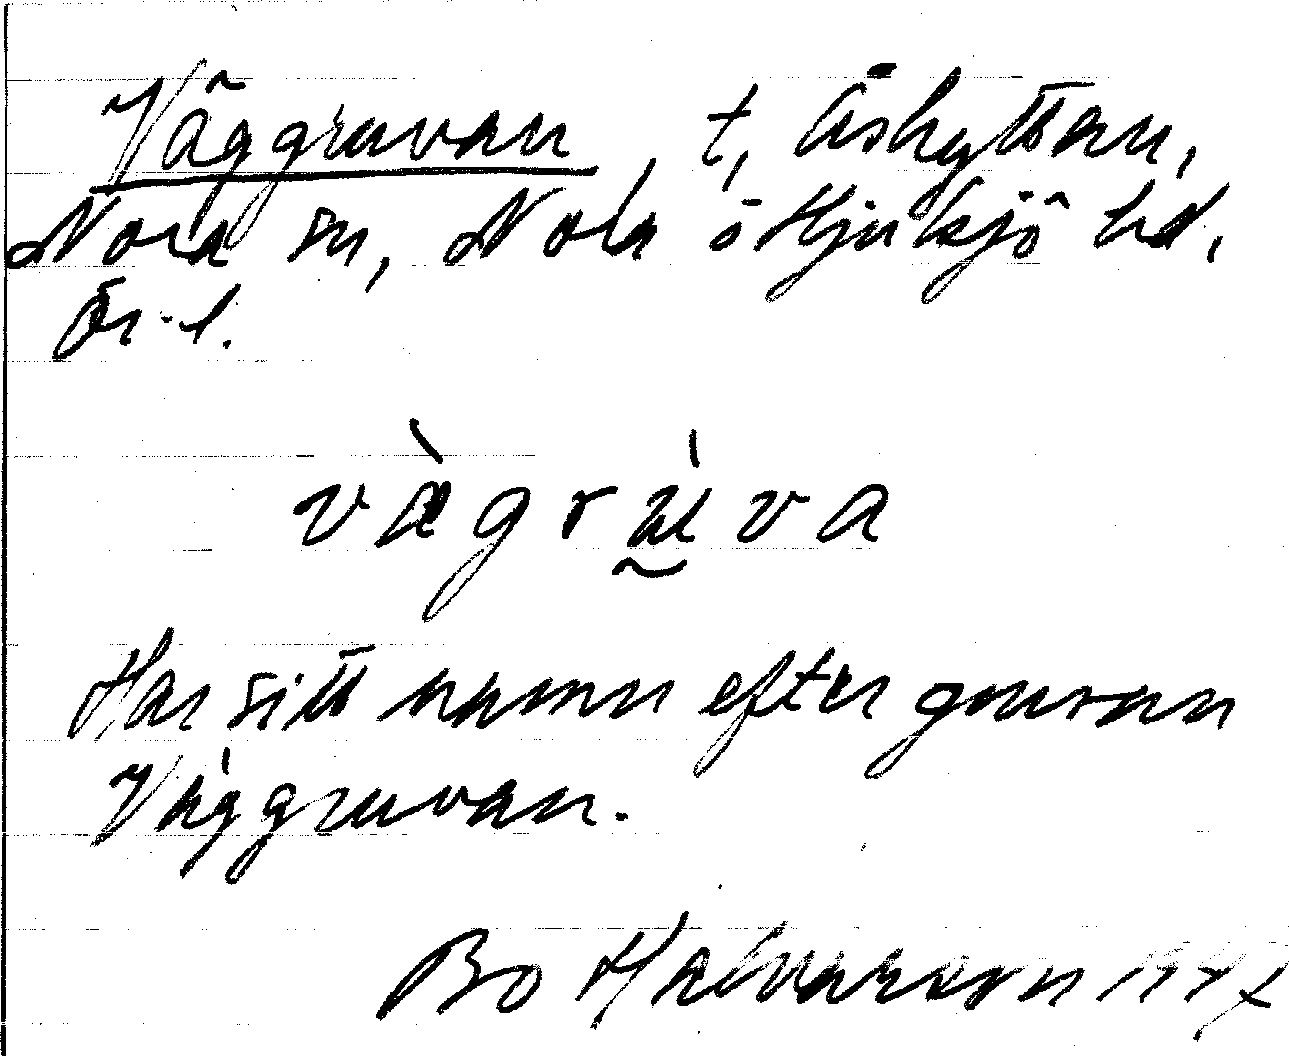 Väggruvan, t, Åshyttan,
Nora sn, Nora o Hjulsjö hd,
Ör. l.
vägru̲va
Har sitt namn efter gruvan
Väggruvan.
Bo Halvarson